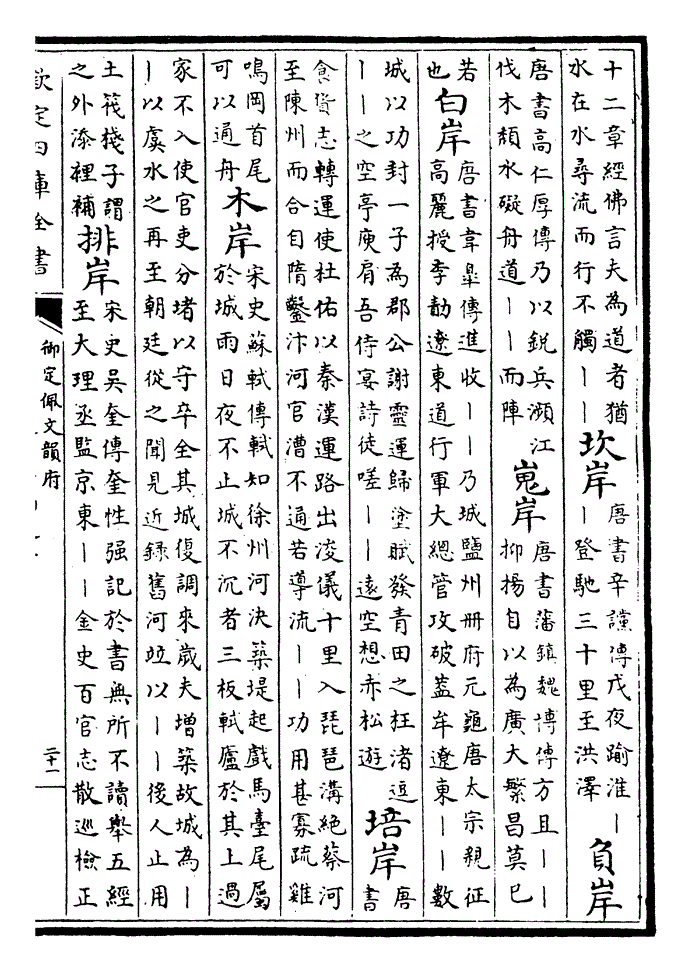 十二章經佛言夫為道者猶
水在水尋流而行不觸丨丨
坎岸
唐書辛讜傳戊夜踰淮丨
丨登馳三十里至洪澤
負岸
唐書高仁厚傳乃以銳兵瀕江
伐木頹水礙舟道丨丨而陣
嵬岸
唐書藩鎮魏博傳方且丨丨
抑揚自以為廣大繁昌莫已
若
也
白岸
唐書韋臯傳進收丨丨乃城鹽州冊府元龜唐太宗親征
高麗授李勣遼東道行軍大總管攻破葢牟遼東丨丨數
城以功封一子為郡公謝靈運歸塗賦發青田之枉渚逗
丨丨之空亭庾肩吾侍宴詩徒嗟丨丨遠空想赤松遊
培岸
唐
書
食貨志轉運使杜佑以秦漢運路出浚儀十里入琵琶溝絶蔡河
至陳州而合自隋鑿汴河官漕不通若導流丨丨功用甚寡疏雞
鳴岡首尾
可以通舟
木岸
宋史蘇軾傳軾知徐州河決築堤起戲馬臺尾屬
於城雨日夜不止城不沉者三板軾廬於其上過
家不入使官吏分堵以守卒全其城復調來歲夫增築故城為丨
丨以虞水之再至朝廷從之聞見近録舊河竝以丨丨後人止用
土筏棧子謂
之外添裡補
排岸
宋史吳奎傳奎性强記於書無所不讀舉五經
至大理丞監京東丨丨金史百官志散巡檢正
欽定四庫全書
御定佩文韻府
二十一